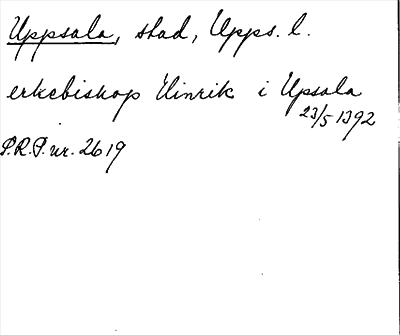 Uppsala, stad, Upps. l.
erkebiskop Hinrik i Upsala
23/5 1392
P.R.P. nr. 2619